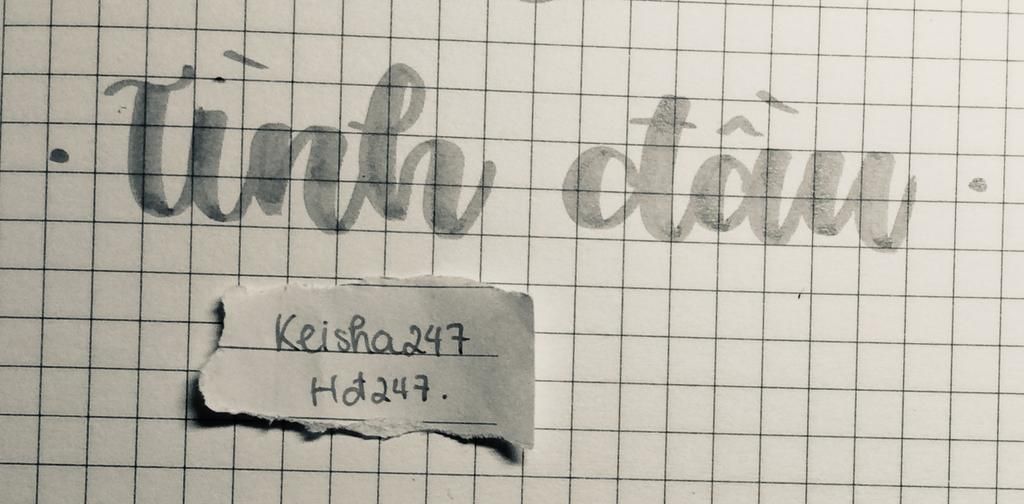 • Tình đầu •
Keisha247
Hdt247.